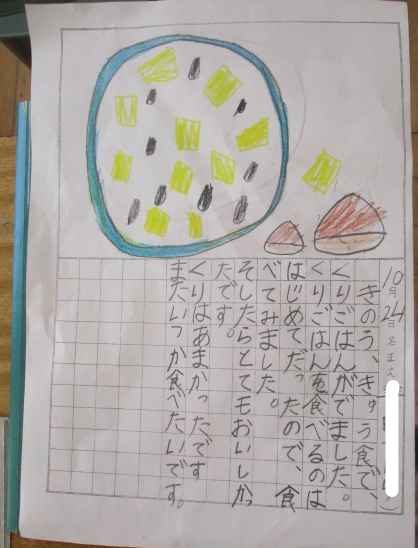 10月24日 名まえ
きのう、きゅう食で、
くりごはんがでました。
くりごはんを食べるのは
はじめてだったので、食
べてみました。
そしたらとてもおいしか
たです。
くりはあまかったです
またいつか食べたいです。